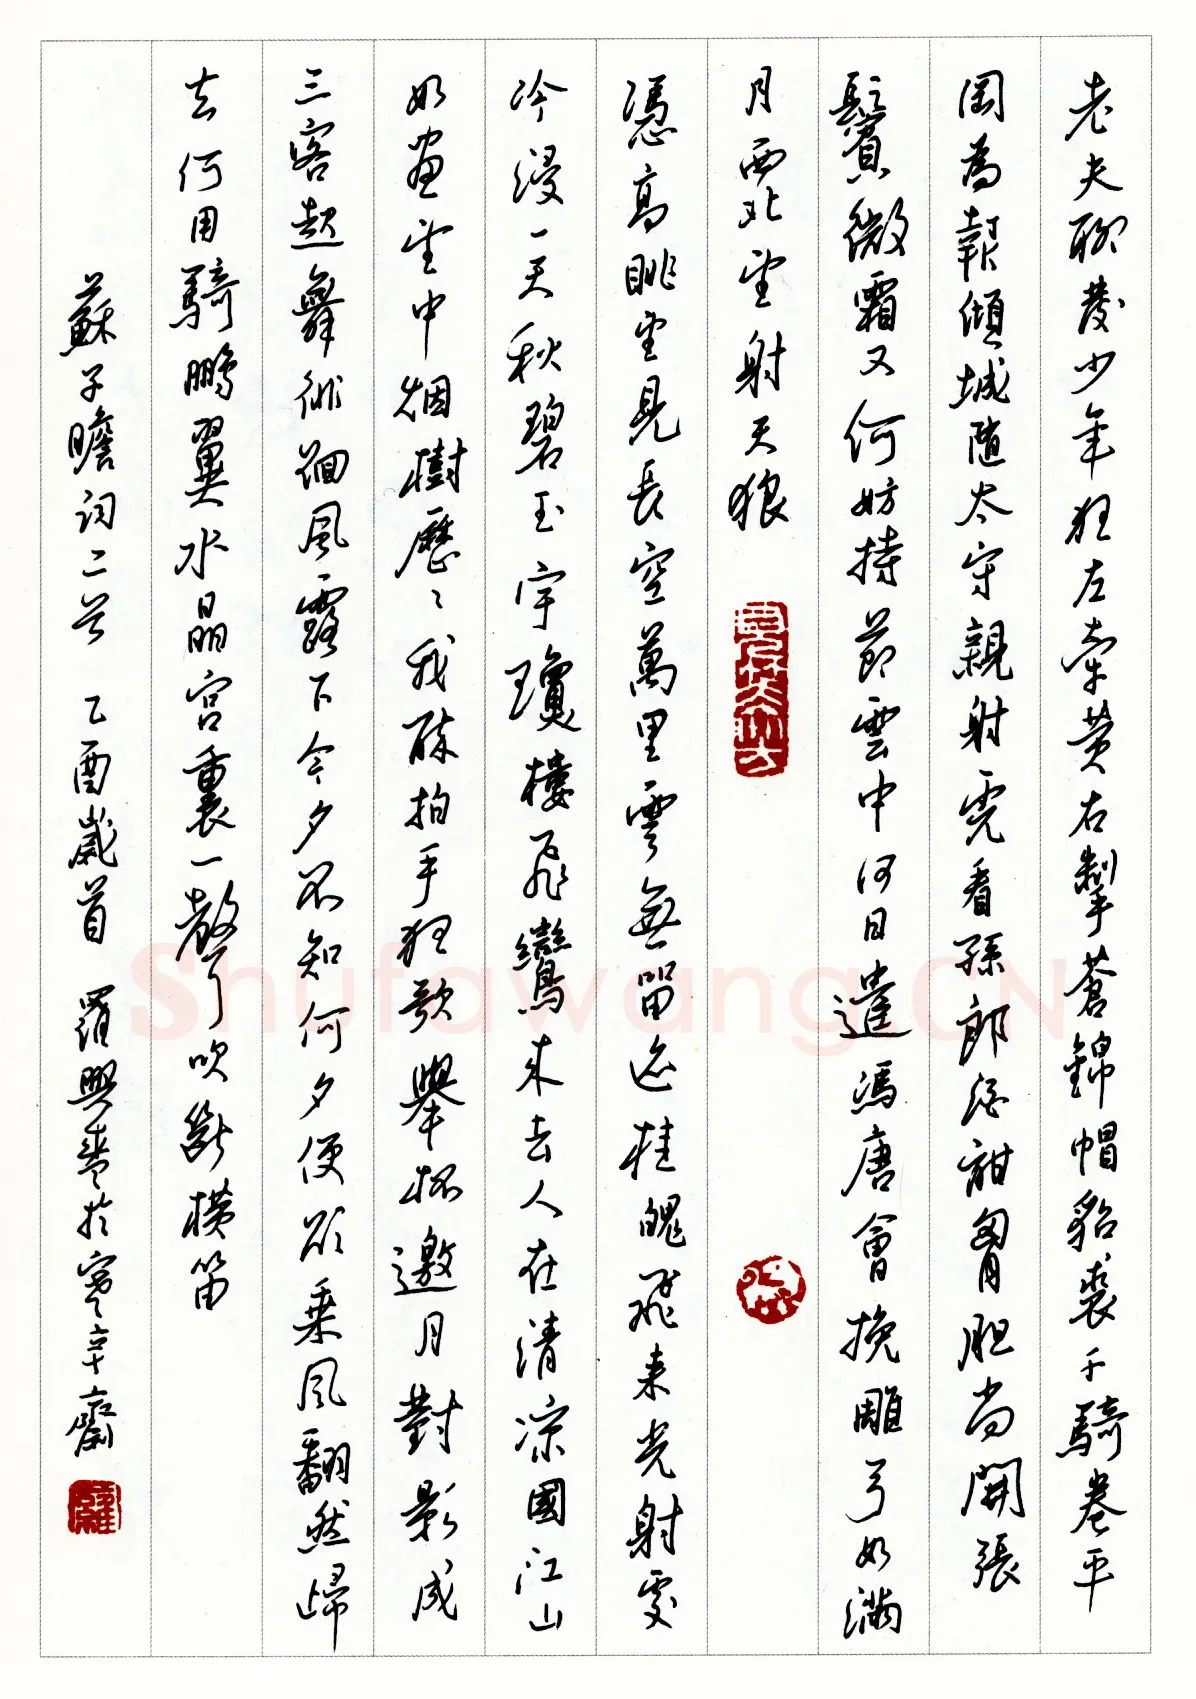 老夫聊發少年狂左牽黄右擎蒼錦帽貂裘千騎卷平
岡為報傾城隨太守親射虎看孫郎酒酣胸胆尚開張
鬢微霜又何妨持節雲中何日遣馮唐會挽雕弓如滿
月西北望射天狼
憑高眺望見長空萬里雲無留迹桂魄飛来光射處
冷浸一天秋碧玉宇瓊樓飛鸞来去人在清凉國江山
如畫望中烟樹歷歷我醉拍手狂歌舉杯邀月對影成
三客起舞徘徊風露下今夕不知何夕便欲乘風翻然歸
去何用騎鵬翼水晶宮裏一聲吹斷橫笛
蘇子瞻詞二首 乙酉歲首 羅興 於 辛齋
ShufawangCN